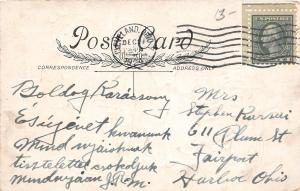 13-
Post Card
CORRESPONDENCE
ADDRESS ONLY
DEC
Boldog Karácsony
És Ujévet kivanunk
Mind nyájoknak
tisztelettel csokoljuk
mindnyájan J. Rom.
Mrs
Stephen
611 Plum St
Fairport
Harbor Ohio